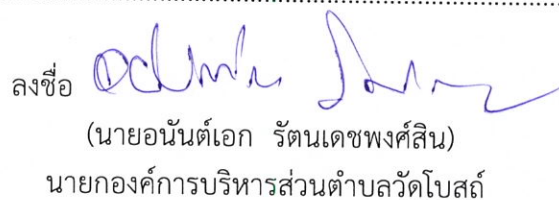 ลงชื่อ
(นายอนันต์เอก รัตนเดชพงศ์สิน)
นายกองค์การบริหารส่วนตำบลวัดโบสถ์